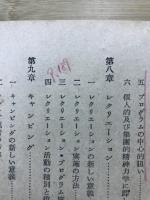 五 プログラムの中心的狙い
六 個人的及び集團的精神力学に即
第八章 レクリエーション
一 レクリエーションの新しい意義
二 レクリエーション実施の方法
三 レクリエーション・プログラム
四 レクリエーション活動の種別と
第九章 キャンピング
一 キャンピングの新しい意義